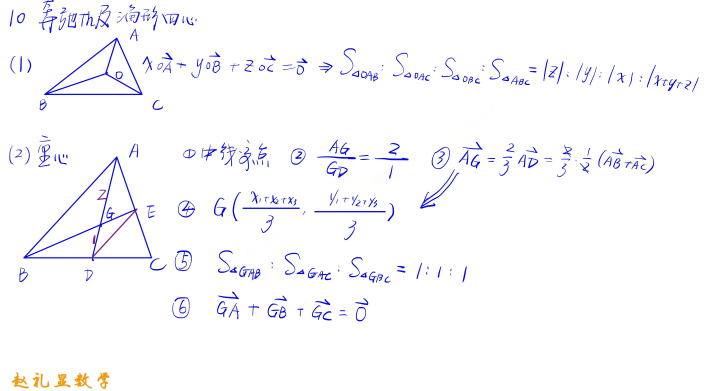 10 奔驰定理及三角形四心
A
(1) xOA→ + yOB→ + zOC→ = 0→ ⇒ S△OAB : S△OAC : S△OBC : S△ABC = |z| : |y| : |x| : |x+y+z|
O
B C
(2) 重心 A ① 中线交点 ② AG/GD = 2/1 ③ AG→ = 2/3 AD→ = 2/3 · 1/2 (AB→ + AC→)
2
G E ④ G( (x₁+x₂+x₃)/3 , (y₁+y₂+y₃)/3 )
1
B D C ⑤ S△GAB : S△GAC : S△GBC = 1 : 1 : 1
⑥ GA→ + GB→ + GC→ = 0→
赵礼显数学